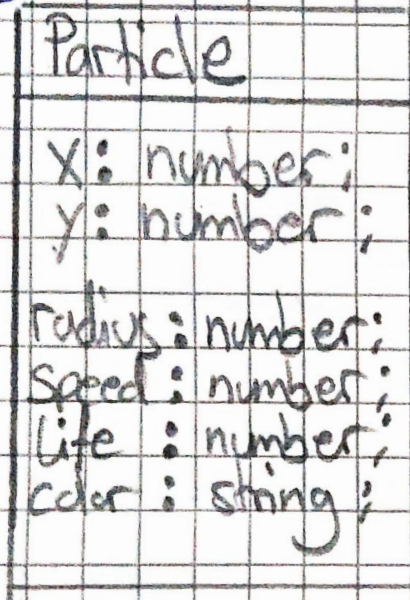 Particle
x: number;
y: number;
radius: number;
speed: number;
life: number;
color: string;